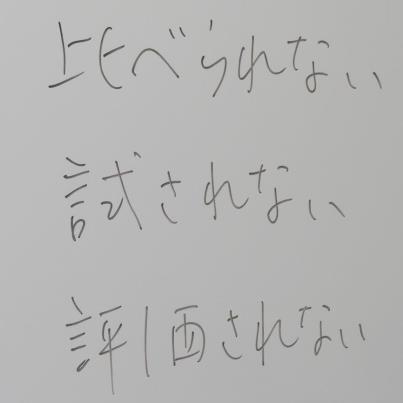 比べられない
試されない
評価されない